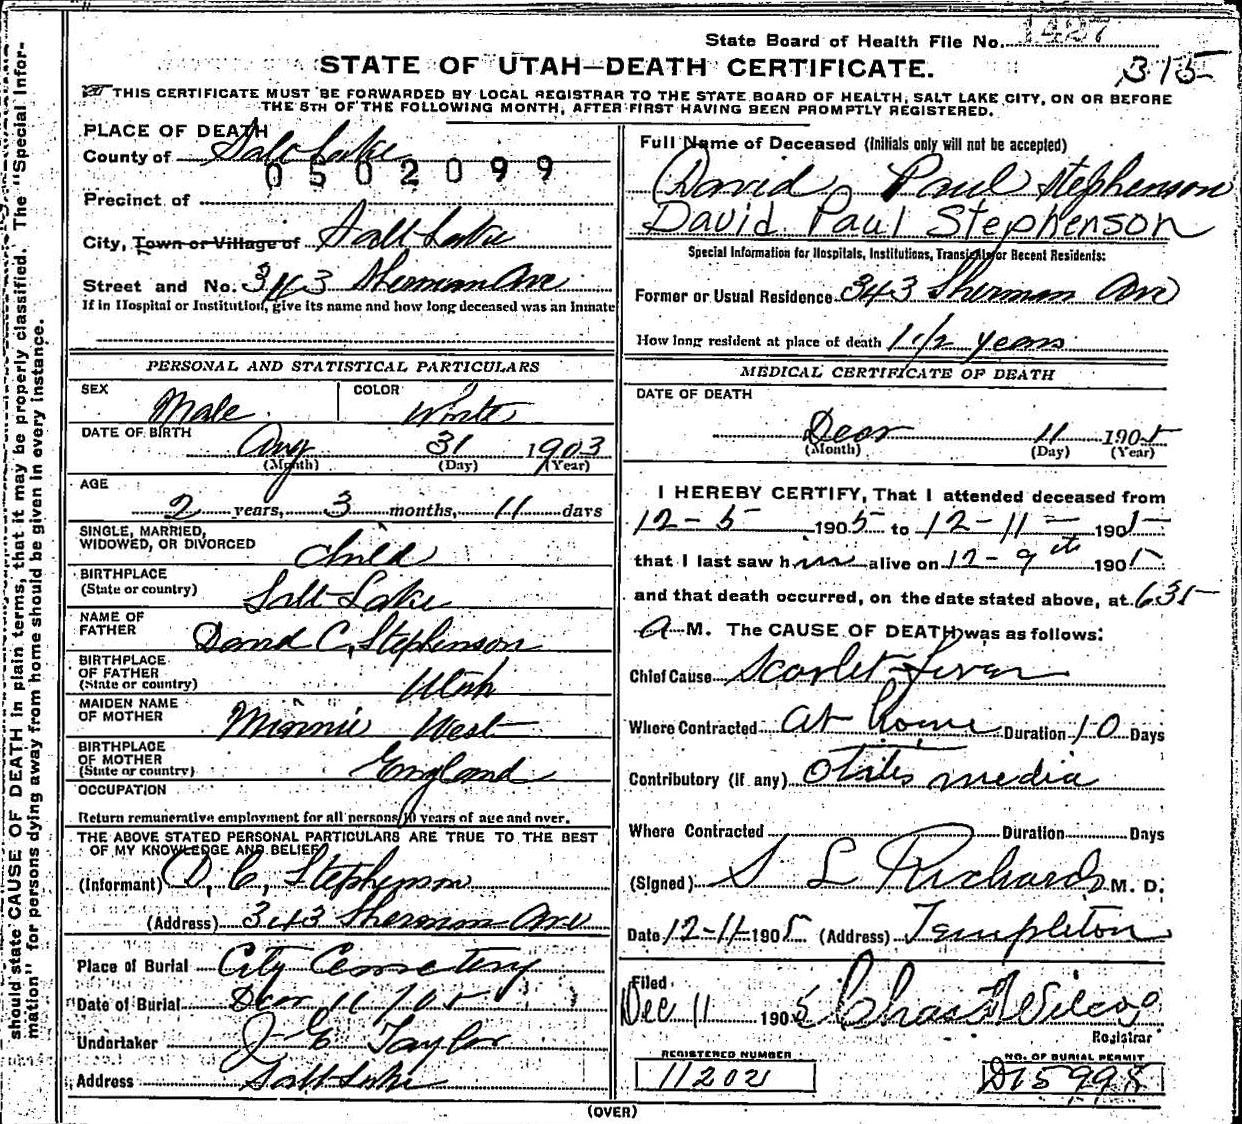 State Board of Health File No. 1427
STATE OF UTAH—DEATH CERTIFICATE.
315
THIS CERTIFICATE MUST BE FORWARDED BY LOCAL REGISTRAR TO THE STATE BOARD OF HEALTH, SALT LAKE CITY, ON OR BEFORE
THE 5TH OF THE FOLLOWING MONTH, AFTER FIRST HAVING BEEN PROMPTLY REGISTERED.
should state CAUSE OF DEATH in plain terms, that it may be properly classified. The "Special Infor-
mation" for persons dying away from home should be given in every instance.
PLACE OF DEATH
County of Salt Lake
0502099
Precinct of
City, Town or Village of Salt Lake
Street and No. 343 Sherman Ave
If in Hospital or Institution, give its name and how long deceased was an Inmate
PERSONAL AND STATISTICAL PARTICULARS
SEX Male COLOR White
DATE OF BIRTH Aug 31 1903
(Month) (Day) (Year)
AGE
2 years, 3 months, 11 days
SINGLE, MARRIED,
WIDOWED, OR DIVORCED Child
BIRTHPLACE
(State or country) Salt Lake
NAME OF
FATHER David C. Stephenson
BIRTHPLACE
OF FATHER
(State or country) Utah
MAIDEN NAME
OF MOTHER Minnie West
BIRTHPLACE
OF MOTHER
(State or country) England
OCCUPATION
Return remunerative employment for all persons 10 years of age and over.
THE ABOVE STATED PERSONAL PARTICULARS ARE TRUE TO THE BEST
OF MY KNOWLEDGE AND BELIEF
(Informant) D. C. Stephenson
(Address) 343 Sherman Ave
Place of Burial City Cemetery
Date of Burial Dec 11 1905
Undertaker J. E. Taylor
Address Salt Lake
Full Name of Deceased (Initials only will not be accepted)
David Paul Stephenson
David Paul Stephenson
Special Information for Hospitals, Institutions, Transients or Recent Residents:
Former or Usual Residence 343 Sherman Ave
How long resident at place of death 1 1/2 years
MEDICAL CERTIFICATE OF DEATH
DATE OF DEATH
Decr 11 1905
(Month) (Day) (Year)
I HEREBY CERTIFY, That I attended deceased from
12-5 1905 to 12-11- 1905
that I last saw him alive on 12-9th 1905
and that death occurred, on the date stated above, at 6 35
A M. The CAUSE OF DEATH was as follows:
Chief Cause Scarlet Fever
Where Contracted at home Duration 10 Days
Contributory (if any) Otitis media
Where Contracted Duration Days
(Signed) S L Richards M. D.
Date 12-11-1905 (Address) Templeton
Filed
Dec 11 1905 Chas Wilcox
Registrar
REGISTERED NUMBER
11202
NO. OF BURIAL PERMIT
D15998
(OVER)